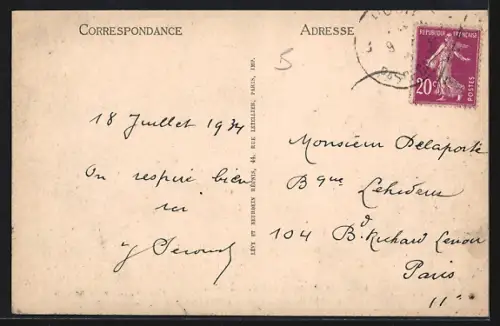 CORRESPONDANCE
ADRESSE
5
RÉPUBLIQUE FRANÇAISE
20c
POSTES
LÉVY ET NEURDEIN RÉUNIS, 44, RUE LETELLIER, PARIS, IMP.
18 Juillet 1934
On respire bien
ici
Monsieur Delaporte
Bque
104 Bd Richard Lenoir
Paris
11e